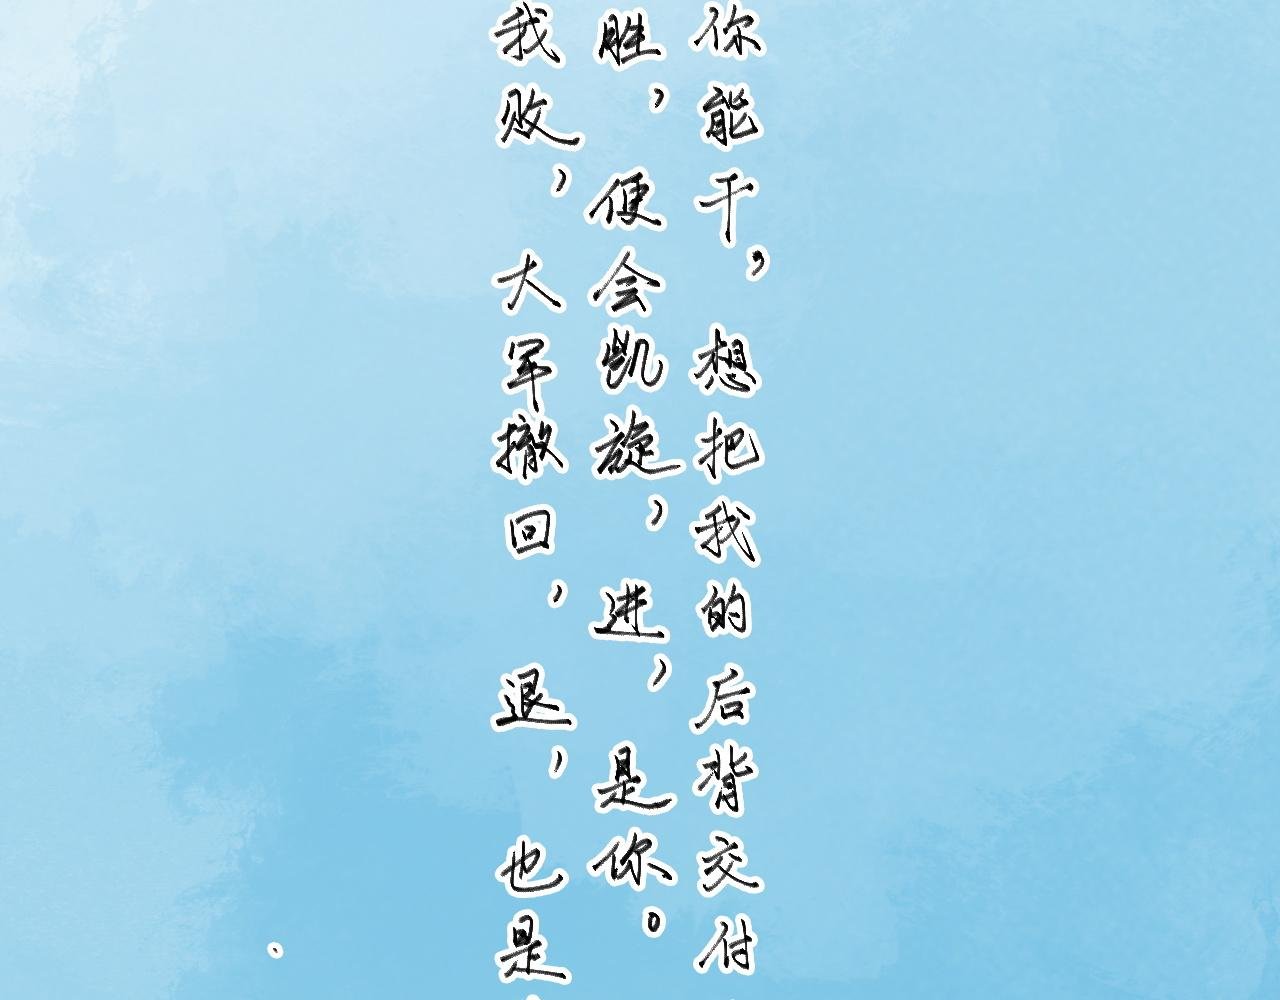 你能干，想把我的后背交付
胜，便会凯旋，进，是你。
我败，大军撤回，退，也是